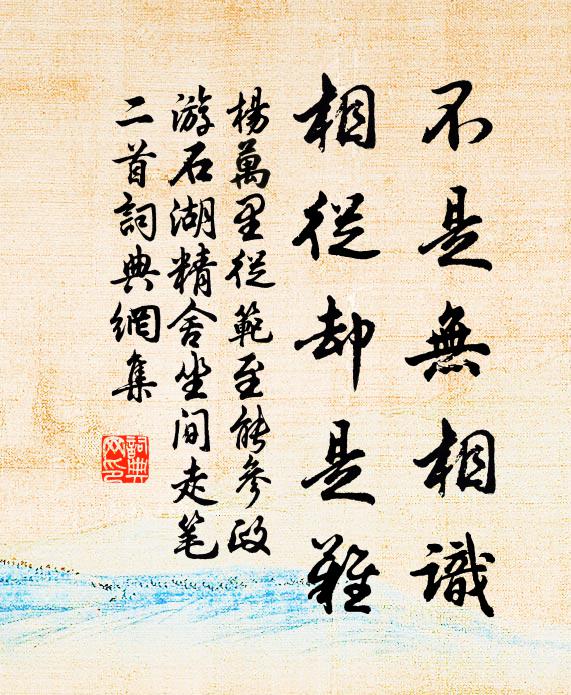 不是無相識
相從却是難
楊萬里從範至能參政
游石湖精舍坐间走笔
二首詞典網集
詞典
网印